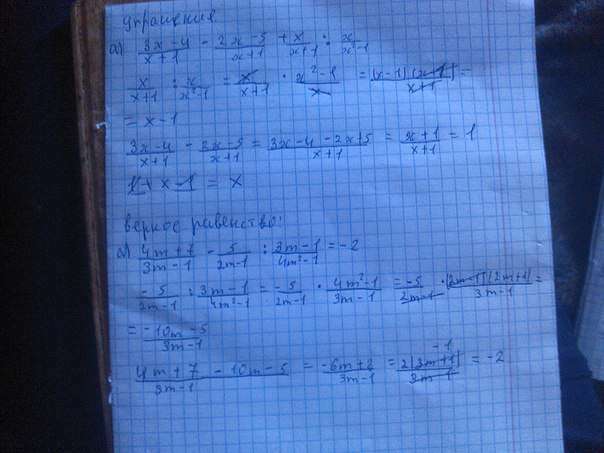 упрощение
а) (3x-4)/(x+1) - (2x-5)/(x+1) + x/(x+1) : x/(x²-1)
x/(x+1) : x/(x²-1) = x/(x+1) · (x²-1)/x = (x-1)(x+1)/(x+1) =
= x-1
(3x-4)/(x+1) - (2x-5)/(x+1) = (3x-4-2x+5)/(x+1) = (x+1)/(x+1) = 1
1+x-1 = x
верное равенство:
а) (4m+7)/(3m-1) - 5/(2m-1) : (3m-1)/(4m²-1) = -2
-5/(2m-1) : (3m-1)/(4m²-1) = -5/(2m-1) · (4m²-1)/(3m-1) = -5/(2m-1) · (2m-1)(2m+1)/(3m-1) =
= (-10m-5)/(3m-1)
(4m+7-10m-5)/(3m-1) = (-6m+2)/(3m-1) = 2(3m+1)/(3m-1) -1 = -2